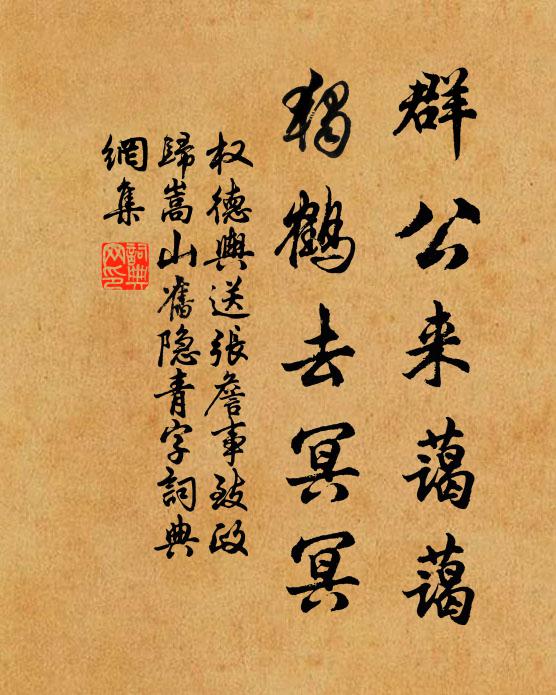 群公来蔼蔼
独鹤去冥冥
权德舆送张詹事致政
归嵩山旧隐青字词典
网集
词典网印